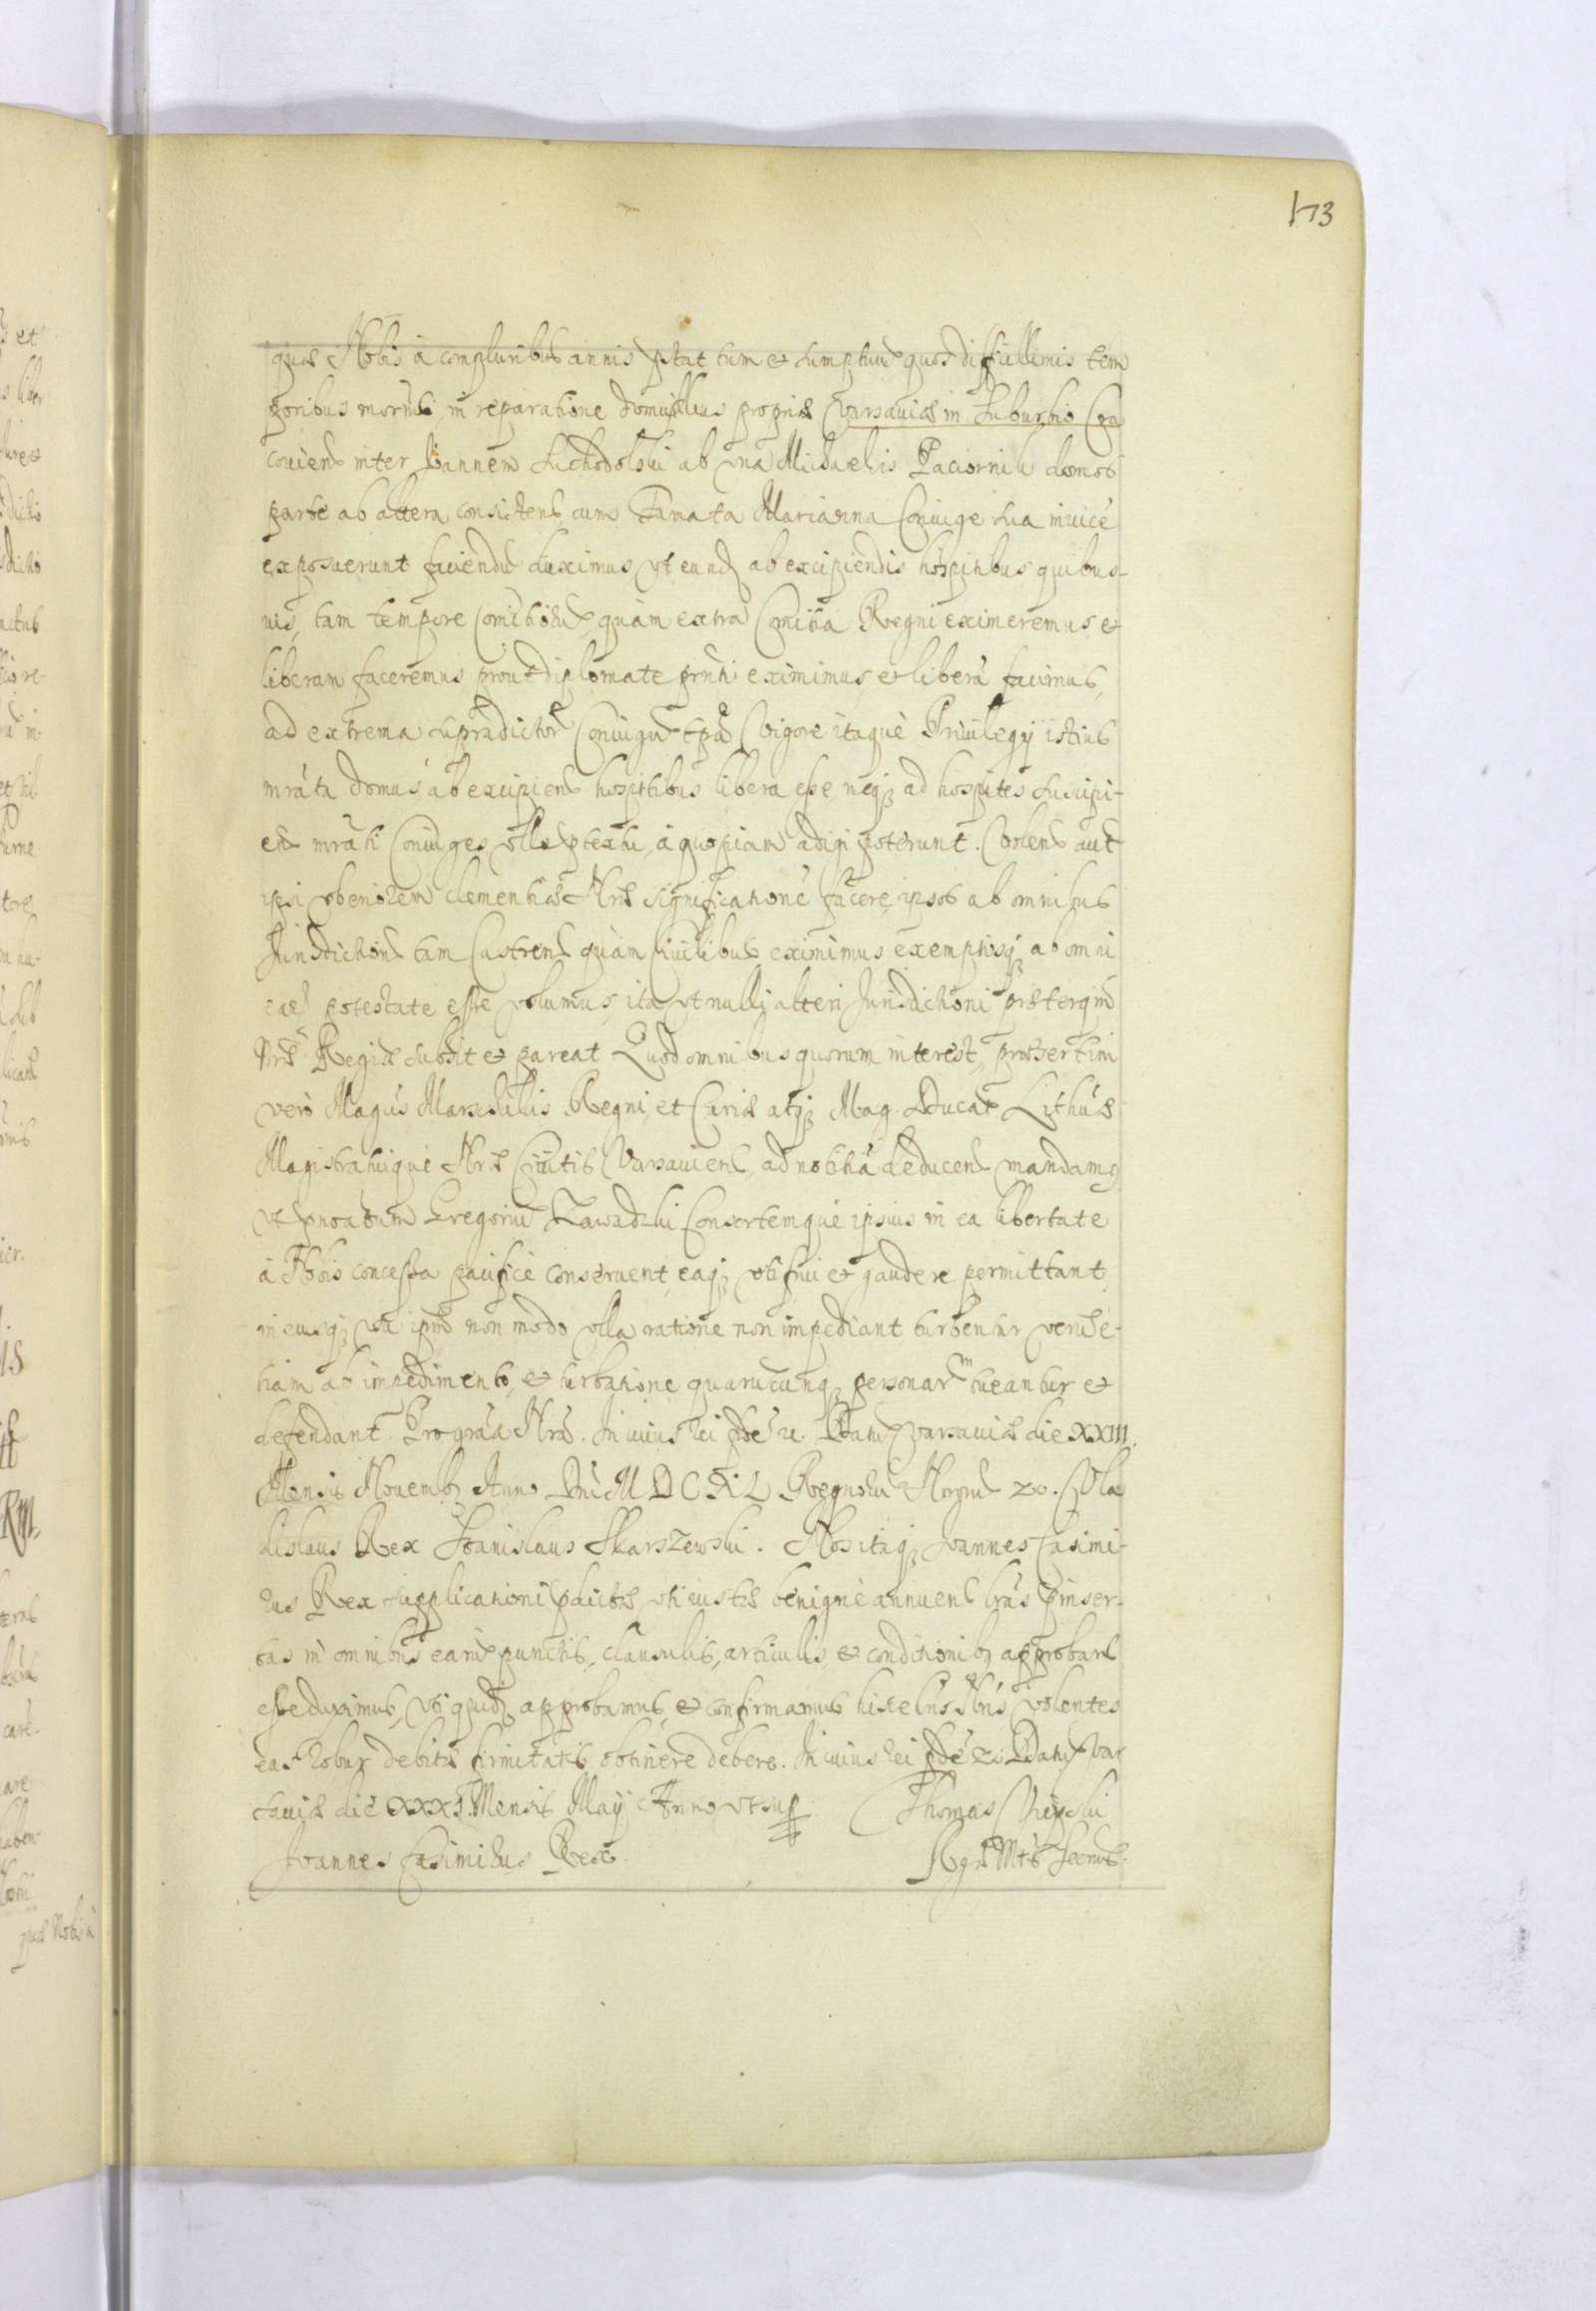 173
quas Nobis à compluribus annis pstat tum et sumptuu quos difficillimis tem
poribus in reparatione domus illius propriæ Varsauiæ in Suburbio Cra
couiens inter Joannem Suchodolski ab vna Michaelis Paciornik domos
parte ab altera consistens cum Famata Marianna Coniuge sua inuicè
exposuerunt faciendũ duximus vt eund ab excipiendis hospitibus quibus-
uis, tam tempore Comitiorũ, quàm extra Comitia Regni eximeremus, et
liberam faceremus prout diplomate prnti eximimus et liberã facimus,
ad extrema supradictor Coniugũ tpa Vigore itaquè Priuilegÿ istius
mrãta domus ab excipiend hospitibus libera esse neq; ad hospites suscipi-
end mrãti Coniuges vllo ptextu, à quopiam adigi poterunt. Volens aut
ipsi vberiorem clementiæ Nræ significationẽ facere, ipsos ab omnibus
Jurisdictiond tam Castrens quàm Ciuilibus eximimus exemptosq; ab omni
eard potestate esse volumus, ita vt nulli alteri Jurisdictioni præterqm
Nræ Regiæ subsit et pareat Quod omnibus quorum interest, præsertim
verò Magcus Marschalis Regni, et Curiæ atq; Mag. Ducat Lithuæ
Magistratuique Nræ Ciuitis Varsauiens, ad notitiã deducend mandamq
vt pnoatum Gregoriũ Zawadzki Consortemquè ipsius in ea libertate
à Nobis concessa pacificè conseruent, eaq; vti frui et gaudere permittant
in eiusq; vsu ipm non modo vlla ratione non impediant turbentur verũ e-
tiam ab impedimento, et turbatione quarucunq; personarm tueantur et
defendant. Pro grãa Nrã. In cuius rei fidẽ etc. Datũ Varsauiæ die XXIII.
Mensis Nouemb; Anno Dni MDCXL Regnorũ Nrorum etc. Vla
dislaus Rex Stanislaus Skarszewski. Nos itaq; Joannes Casimi-
rus Rex supplicationi pdictæ vti iustæ benignè annuend lras pinser-
tas in omnibus earũ punctis, clausulis, articulis, et conditionib; approbard
esse duximus, vti quidẽ approbamus, et confirmamus hisce lris Nris volentes
eas robur debitæ firmitatis obtinere debere. In cuius rei fidẽ etc. Datũ Var
sauiæ die XXXI. Mensis Maÿ Anno vt sup Thomas Vieyski
Joannes Casimirus Rex. Rgæ Mtis Secrius.